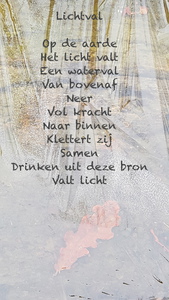 Lichtval
Op de aarde
Het licht valt
Een waterval
Van bovenaf
Neer
Vol kracht
Naar binnen
Klettert zij
Samen
Drinken uit deze bron
Valt licht